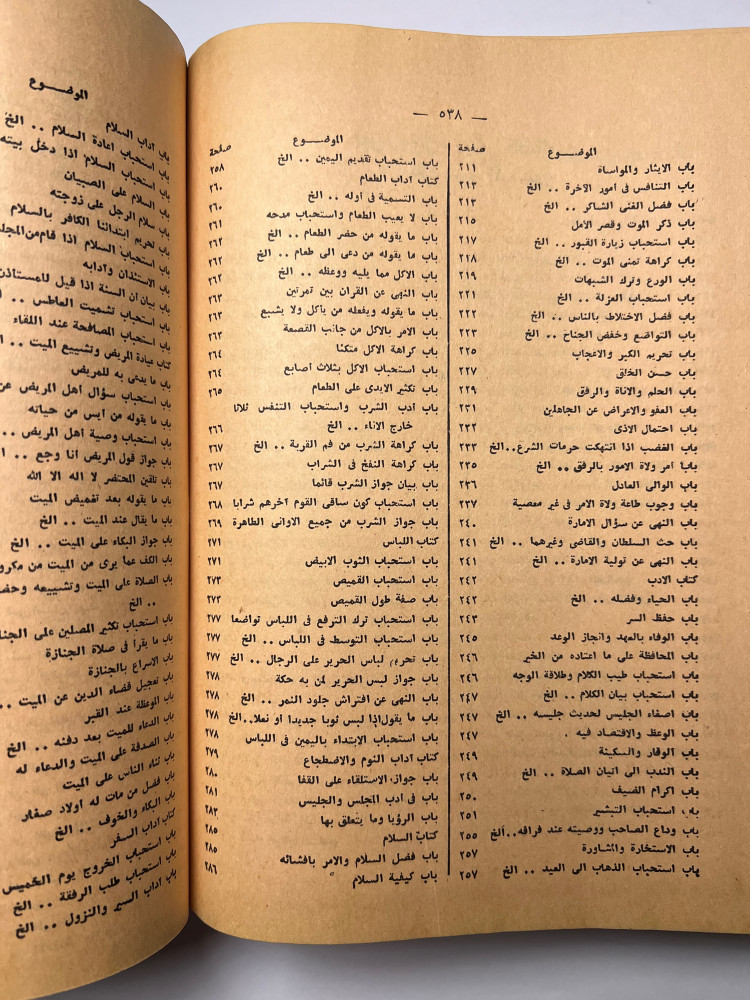 — ٥٣٨ —
الموضـــوع صفحة
باب الايثار والمواساة ٢١١
باب التنافس فى أمور الآخرة .. الخ ٢١٣
باب فضل الغنى الشاكر .. الخ ٢١٣
باب ذكر الموت وقصر الأمل ٢١٥
باب استحباب زيارة القبور .. الخ ٢١٧
باب كراهة تمنى الموت .. الخ ٢١٨
باب الورع وترك الشبهات ٢١٩
باب استحباب العزلة .. الخ ٢٢١
باب فضل الاختلاط بالناس .. الخ ٢٢٢
باب التواضع وخفض الجناح .. الخ ٢٢٣
باب تحريم الكبر والاعجاب ٢٢٥
باب حسن الخلق ٢٢٧
باب الحلم والاناة والرفق ٢٢٩
باب العفو والاعراض عن الجاهلين ٢٣١
باب احتمال الاذى ٢٣٢
باب الغضب اذا انتهكت حرمات الشرع..الخ ٢٣٣
باب أمر ولاة الامور بالرفق .. الخ ٢٣٥
باب الوالى العادل ٢٣٦
باب وجوب طاعة ولاة الامر فى غير معصية ٢٣٧
باب النهى عن سؤال الامارة ٢٤٠
باب حث السلطان والقاضى وغيرهما .. الخ ٢٤١
باب النهى عن تولية الامارة .. الخ ٢٤١
كتاب الادب ٢٤٢
باب الحياء وفضله .. الخ ٢٤٢
باب حفظ السر ٢٤٣
باب الوفاء بالعهد وانجاز الوعد ٢٤٥
باب المحافظة على ما اعتاده من الخير ٢٤٦
باب استحباب طيب الكلام وطلاقة الوجه ٢٤٦
باب استحباب بيان الكلام .. الخ ٢٤٧
باب اصغاء الجليس لحديث جليسه .. الخ ٢٤٧
باب الوعظ والاقتصاد فيه ٢٤٧
باب الوقار والسكينة ٢٤٩
باب الندب الى اتيان الصلاة .. الخ ٢٤٩
باب اكرام الضيف ٢٥٠
باب استحباب التبشير ٢٥١
باب وداع الصاحب ووصيته عند فراقه..الخ ٢٥٥
باب الاستخارة والمشاورة ٢٥٧
باب استحباب الذهاب الى العيد .. الخ ٢٥٧
الموضـــوع صفحة
باب استحباب تقديم اليمين .. الخ ٢٥٨
كتاب آداب الطعام ٢٦٠
باب التسمية فى أوله .. الخ ٢٦٠
باب لا يعيب الطعام واستحباب مدحه ٢٦١
باب ما يقوله من حضر الطعام .. الخ ٢٦٢
باب ما يقوله من دعى الى طعام .. الخ ٢٦٢
باب الاكل مما يليه ووعظه .. الخ ٢٦٢
باب النهى عن القران بين تمرتين ٢٦٣
باب ما يقوله ويفعله من يأكل ولا يشبع ٢٦٣
باب الامر بالاكل من جانب القصعة ٢٦٣
باب كراهة الاكل متكئا ٢٦٤
باب استحباب الاكل بثلاث أصابع ٢٦٤
باب تكثير الايدى على الطعام ٢٦٥
باب أدب الشرب واستحباب التنفس ثلاثا
خارج الاناء .. الخ ٢٦٦
باب كراهة الشرب من فم القربة .. الخ ٢٦٧
باب كراهة النفخ فى الشراب ٢٦٧
باب بيان جواز الشرب قائما ٢٦٧
باب استحباب كون ساقى القوم آخرهم شرابا ٢٦٨
باب جواز الشرب من جميع الاوانى الطاهرة ٢٦٩
كتاب اللباس ٢٧١
باب استحباب الثوب الابيض ٢٧١
باب استحباب القميص ٢٧٣
باب صفة طول القميص ٢٧٣
باب استحباب ترك الترفع فى اللباس تواضعا ٢٧٧
باب استحباب التوسط فى اللباس .. الخ ٢٧٧
باب تحريم لباس الحرير على الرجال .. الخ ٢٧٧
باب جواز لبس الحرير لمن به حكة ٢٧٨
باب النهى عن افتراش جلود النمر .. الخ ٢٧٨
باب ما يقول اذا لبس ثوبا جديدا أو نعلا..الخ ٢٧٨
باب استحباب الابتداء باليمين فى اللباس ٢٧٨
كتاب آداب النوم والاضطجاع ٢٧٩
باب جواز الاستلقاء على القفا ٢٨٠
باب فى أدب المجلس والجليس ٢٨١
باب الرؤيا وما يتعلق بها ٢٨٣
كتاب السلام ٢٨٥
باب فضل السلام والامر بافشائه ٢٨٥
باب كيفية السلام ٢٨٦
الموضـــوع
باب آداب السلام
باب استحباب اعادة السلام .. الخ
باب استحباب السلام اذا دخل بيته
باب السلام على الصبيان
باب سلام الرجل على زوجته
باب تحريم ابتدائنا الكافر بالسلام
باب استحباب السلام اذا قام من المجلس
باب الاستئذان وآدابه
باب بيان أن السنة اذا قيل للمستأذن
باب استحباب تشميت العاطس ..
باب استحباب المصافحة عند اللقاء
كتاب عيادة المريض وتشييع الميت ..
باب ما يدعى به للمريض
باب استحباب سؤال أهل المريض عن
باب ما يقوله من أيس من حياته
باب استحباب وصية أهل المريض ..
باب جواز قول المريض أنا وجع ..
باب تلقين المحتضر لا اله الا الله
باب ما يقوله بعد تغميض الميت
باب ما يقال عند الميت .. الخ
باب جواز البكاء على الميت .. الخ
باب الكف عما يرى من الميت من مكروه
باب الصلاة على الميت وتشييعه
.. الخ
باب استحباب تكثير المصلين على الجنازة
باب ما يقرأ فى صلاة الجنازة
باب الاسراع بالجنازة
باب تعجيل قضاء الدين عن الميت ..
باب الموعظة عند القبر
باب الدعاء للميت بعد دفنه .. الخ
باب الصدقة على الميت والدعاء له
باب ثناء الناس على الميت
باب فضل من مات له أولاد صغار
باب البكاء والخوف .. الخ
كتاب آداب السفر
باب استحباب الخروج يوم الخميس
باب استحباب طلب الرفقة .. الخ
باب آداب السير والنزول .. الخ